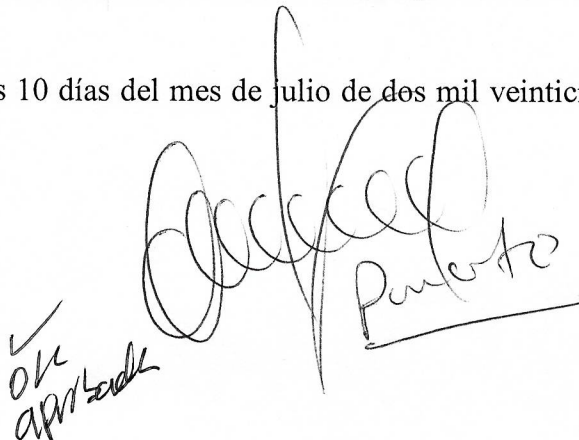 s 10 días del mes de julio de dos mil veintici
ok
aprobado